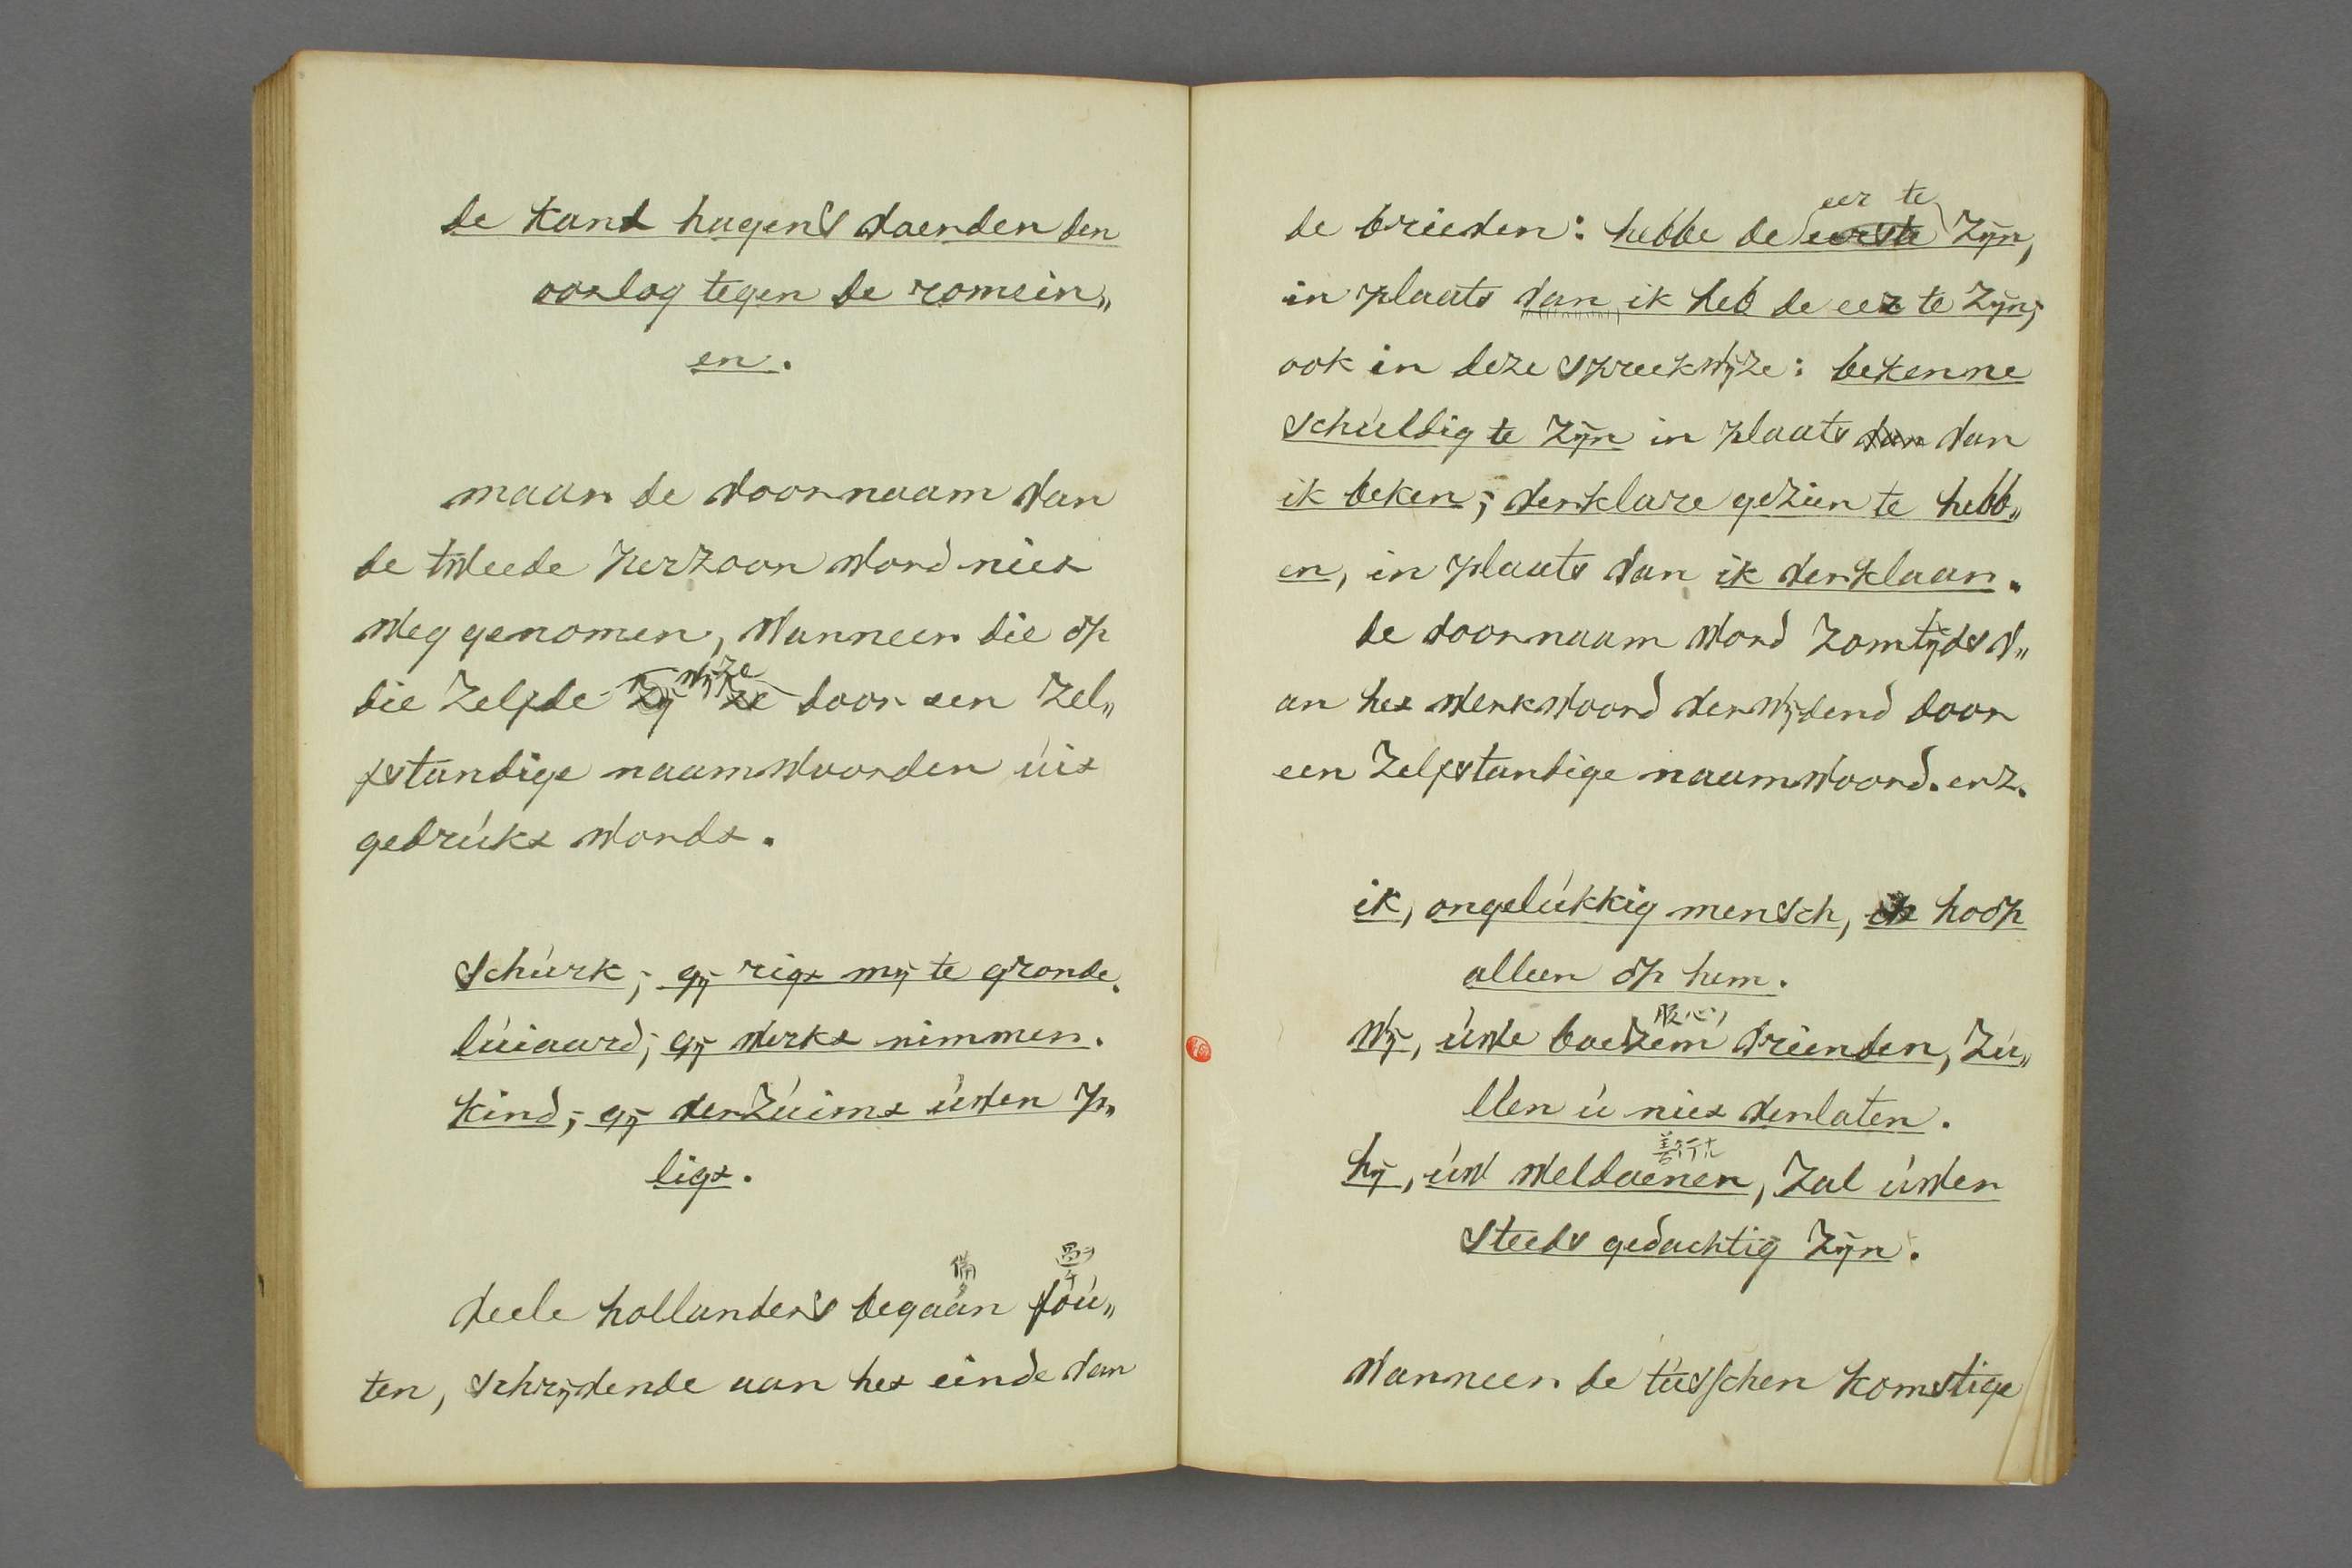 de kart hagers voerden den
oorlog tegen de romein„
en.
maar de voornaam van
de tweede perzoon word niet
weg genomen, wanneer die op
wijze
die zelfde door een zel„
fstandige naamwoorden uit
gedrukt wordt.
schurk; gij rigt mij te gronde.
luiaard; gij werkt nimmer.
kind; gij verzuimt uwen p„
ligt.
veele hollanders begaan fou„
ten, schrijvende aan het einde van
eer te
de brieven: hebbe de eerste zijn,
in plaats van ik heb de eer te zijn;
ook in deze spreekwijze: bekenne
schuldig te zijn in plaats van van
ik beken; verklare gezien te hebb„
en, in plaats van ik verklaar.
de voornaam word zomtijds v„
an het werkwoord verwijderd door
een zelfstandige naamwoord. enz.
ik, ongelukkig mensch, ik hoop
alleen op hem.
服心ノ
wij, uwe boezem vrienden, zu„
llen u niet verlaten.
善行ナル
hij, uw weldoener, zal uwer
steeds gedachtig zijn.
wanneer de tusschen komstige